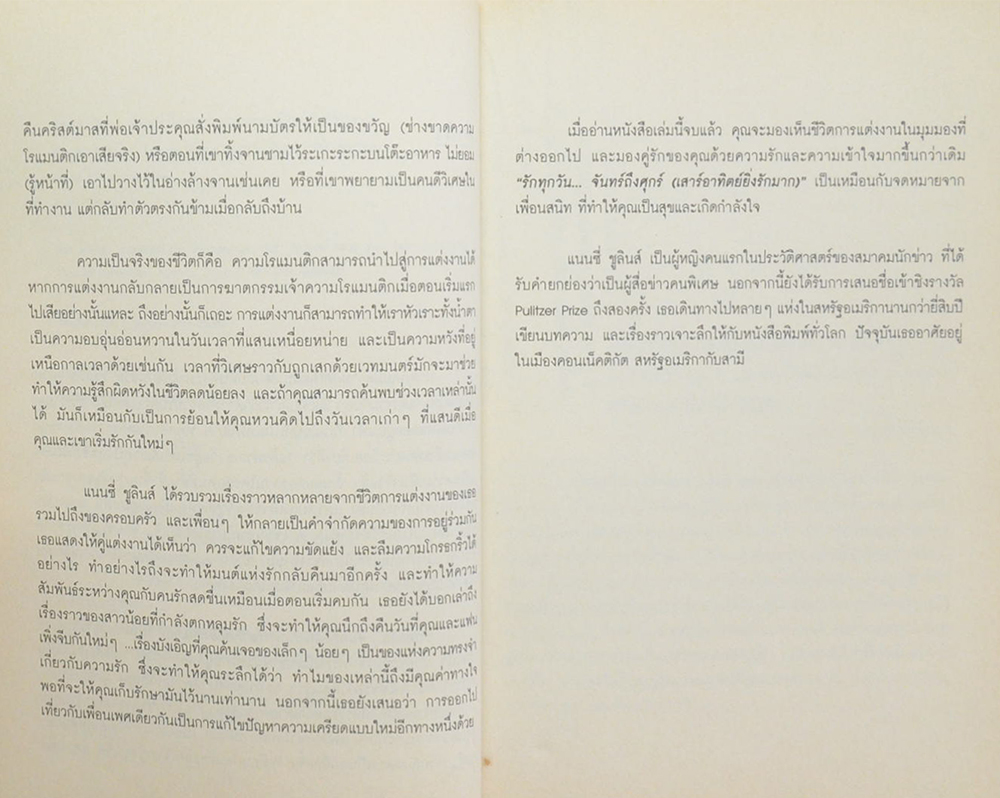 คืนคริสต์มาสที่พ่อเจ้าประคุณสั่งพิมพ์นามบัตรให้เป็นของขวัญ (ช่างขาดความ
โรแมนติกเอาเสียจริง) หรือตอนที่เขาทิ้งจานชามไว้ระเกะระกะบนโต๊ะอาหาร ไม่ยอม
(รู้หน้าที่) เอาไปวางไว้ในอ่างล้างจานเช่นเคย หรือที่เขาพยายามเป็นคนดีวิเศษใน
ที่ทำงาน แต่กลับทำตัวตรงกันข้ามเมื่อกลับถึงบ้าน
ความเป็นจริงของชีวิตก็คือ ความโรแมนติกสามารถนำไปสู่การแต่งงานได้
หากการแต่งงานกลับกลายเป็นการฆาตกรรมเจ้าความโรแมนติกเมื่อตอนเริ่มแรก
ไปเสียอย่างนั้นแหละ ถึงอย่างนั้นก็เถอะ การแต่งงานก็สามารถทำให้เราหัวเราะทั้งน้ำตา
เป็นความอบอุ่นอ่อนหวานในวันเวลาที่แสนเหนื่อยหน่าย และเป็นความหวังที่อยู่
เหนือกาลเวลาด้วยเช่นกัน เวลาที่วิเศษราวกับถูกเสกด้วยเวทมนตร์มักจะมาช่วย
ทำให้ความรู้สึกผิดหวังในชีวิตลดน้อยลง และถ้าคุณสามารถค้นพบช่วงเวลาเหล่านั้น
ได้ มันก็เหมือนกับเป็นการย้อนให้คุณหวนคิดไปถึงวันเวลาเก่าๆ ที่แสนดีเมื่อ
คุณและเขาเริ่มรักกันใหม่ๆ
แนนซี่ ชูลินส์ ได้รวบรวมเรื่องราวหลากหลายจากชีวิตการแต่งงานของเธอ
รวมไปถึงของครอบครัว และเพื่อนๆ ให้กลายเป็นคำจำกัดความของการอยู่ร่วมกัน
เธอแสดงให้คู่แต่งงานได้เห็นว่า ควรจะแก้ไขความขัดแย้ง และลืมความโกรธกริ้วได้
อย่างไร ทำอย่างไรถึงจะทำให้มนต์แห่งรักกลับคืนมาอีกครั้ง และทำให้ความ
สัมพันธ์ระหว่างคุณกับคนรักสดชื่นเหมือนเมื่อตอนเริ่มคบกัน เธอยังได้บอกเล่าถึง
เรื่องราวของสาวน้อยที่กำลังตกหลุมรัก ซึ่งจะทำให้คุณนึกถึงคืนวันที่คุณและแฟน
เพิ่งจีบกันใหม่ๆ ...เรื่องบังเอิญที่คุณค้นเจอของเล็กๆ น้อยๆ เป็นของแห่งความทรงจำ
เกี่ยวกับความรัก ซึ่งจะทำให้คุณระลึกได้ว่า ทำไมของเหล่านี้ถึงมีคุณค่าทางใจ
พอที่จะให้คุณเก็บรักษามันไว้นานเท่านาน นอกจากนี้เธอยังเสนอว่า การออกไป
เที่ยวกับเพื่อนเพศเดียวกันเป็นการแก้ไขปัญหาความเครียดแบบใหม่อีกทางหนึ่งด้วย
เมื่ออ่านหนังสือเล่มนี้จบแล้ว คุณจะมองเห็นชีวิตการแต่งงานในมุมมองที่
ต่างออกไป และมองคู่รักของคุณด้วยความรักและความเข้าใจมากขึ้นกว่าเดิม
"รักทุกวัน... จันทร์ถึงศุกร์ (เสาร์อาทิตย์ยิ่งรักมาก)" เป็นเหมือนกับจดหมายจาก
เพื่อนสนิท ที่ทำให้คุณเป็นสุขและเกิดกำลังใจ
แนนซี่ ชูลินส์ เป็นผู้หญิงคนแรกในประวัติศาสตร์ของสมาคมนักข่าว ที่ได้
รับคำยกย่องว่าเป็นผู้สื่อข่าวคนพิเศษ นอกจากนี้ยังได้รับการเสนอชื่อเข้าชิงรางวัล
Pulitzer Prize ถึงสองครั้ง เธอเดินทางไปหลายๆ แห่งในสหรัฐอเมริกานานกว่ายี่สิบปี
เขียนบทความ และเรื่องราวเจาะลึกให้กับหนังสือพิมพ์ทั่วโลก ปัจจุบันเธออาศัยอยู่
ในเมืองคอนเน็คติกัต สหรัฐอเมริกากับสามี